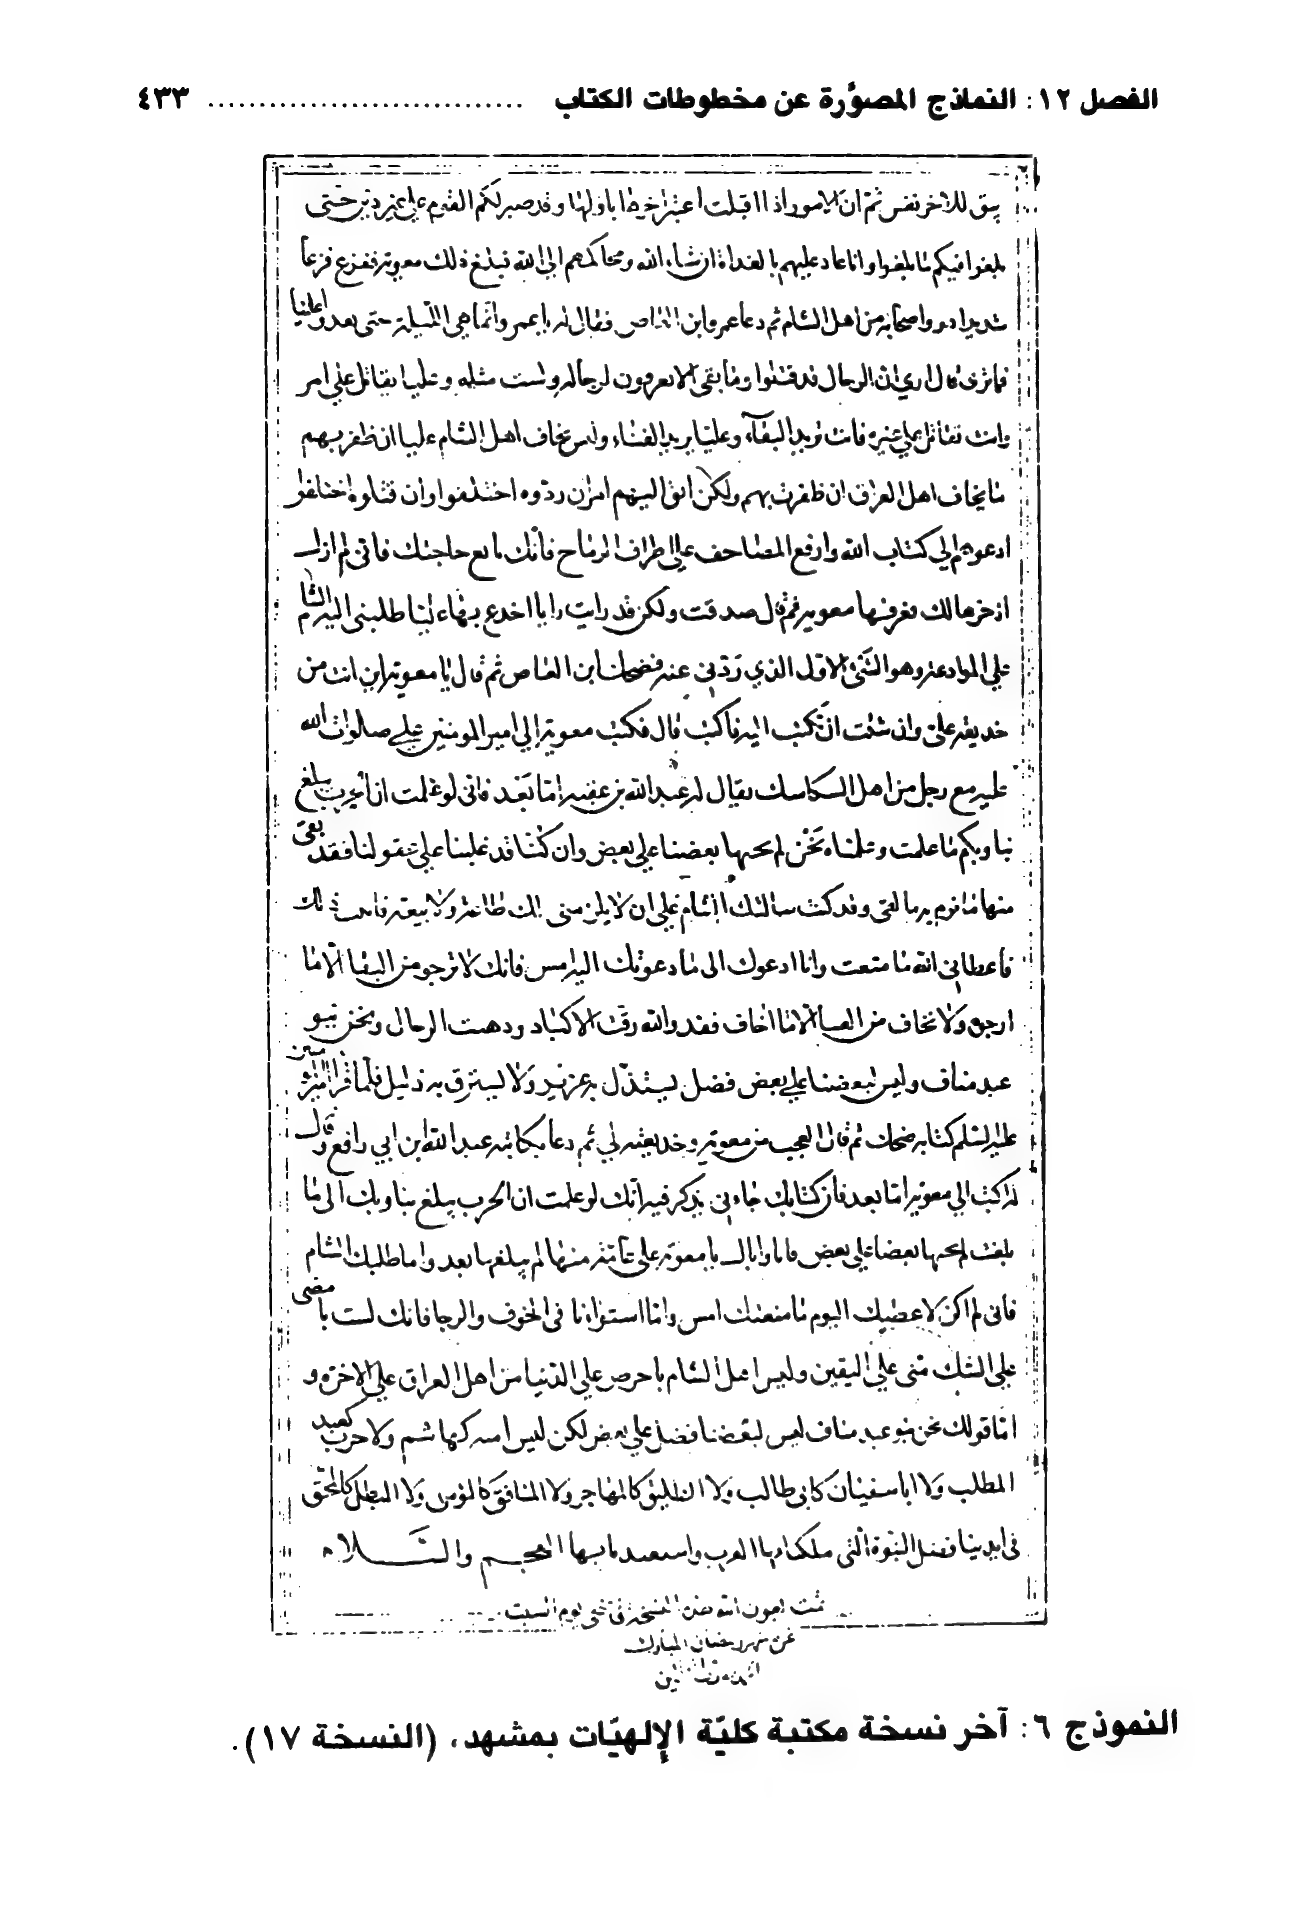 الفصل ١٢: النماذج المصوَّرة عن مخطوطات الكتاب .............................. ٤٣٣
يبق للاخر نفس ثم ان الامور اذا اقبلت اعتبر اخرها باولها وقد صبر لكم القوم على غير دين حتى
بلغوا فيكم ما بلغوا وانا غاد عليهم بالغداة ان شاء الله ومحاكمهم الى الله فبلغ ذلك معوية ففزع فزعاً
شديدا هو واصحابه من اهل الشام ثم دعا عمرو ابن العاص فقال له يا عمرو انما هي الليلة حتى يغدو علينا
فما ترى قال ارى ان الرجال قد قتلوا وما بقى لا يعرفون لرجاله ولست مثله وعليا يقاتل على امر
وانت تقاتل على غيره فانت تريد البقآء وعليا يريد الفناء وليس يخاف اهل الشام عليا ان ظفر بهم
ما يخاف اهل العراق ان ظفرت بهم ولكن الق اليهم امرا ان ردّوه اختلفوا وان قبلوه اختلفوا
ادعوهم الى كتاب الله وارفع المصاحف على اطراف الرماح فانك بالغ حاجتك فانى لم ازل
ادخرها لك فعرفها معوية ثم قال صدقت ولكن قد رايت رايا اخدع به عليا طلبنى اليه الشام
على الموادعة وهو الشئ الاول الذي ردّنى عنه فضحك ابن العاص ثم قال يا معوية اين انت من
خديعة على وان شئت ان تكتب اليه فاكتب قال فكتب معوية الى امير المومنين على صلوات الله
عليه مع رجل من اهل السكاسك يقال له عبد الله بن عقبه امّا بَعد فانى لو علمت ان الحرب يبلغ
بنا وبكم ما علمت وعلمناه نحن لم يجنها بعضنا على بعض وان كنّا قد غلبنا على عقولنا فقد بقى
منها ما نرم به ما بقى وقد كنت سالتك الشام على ان لا يلزمنى لك طاعة ولا بيعة فابيت ذلك
فاعطانى الله ما منعت وانا ادعوك الى ما دعوتك اليه امس فانك لا ترجو من البقا الّا ما
ارجو ولا تخاف من الفنا الا ما اخاف فقد والله رقت الاكباد وذهبت الرجال ونحن بنو
عبد مناف وليس لبعضنا على بعض فضل ليستذّل به عزيز ولا ليسترق به ذليل فلمّا قرأ امير المؤمنين
عليه السّلم كتابه ضحك ثم قال العجب من معوية وخديعته لى ثم دعا بكاتبه عبد الله ابن ابي رافع وقال
له اكتب الى معوية امّا بعد فان كتابك جاءنى يذكر فيه انّك لو علمت ان الحرب يبلغ بنا وبك الى ما
بلغت لم يجنها بعضنا على بعض فانا واياك يا معوية على غاية منها لم يبلغها بعد واما طلبك الشام
فانى لم اكن لاعطيك اليوم ما منعتك امس واما استواؤنا فى الخوف والرجا فانك لست بامضى
على الشك منّى على اليقين وليس اهل الشام باحرص على الدّنيا من اهل العراق على الاخرة و
امّا قولك نحن بنو عبد مناف ليس لبعضنا فضل على بعض لكن ليس اميه كهاشم ولا حرب كعبد
المطلب ولا ابا سفيان كابى طالب ولا الطليق كالمهاجر ولا المنافق كالمؤمن ولا المبطل كالمحقّ
فى ايدينا فضل النبوة الّتى ملكنا بها العرب واستعبدنا بها العجم والسَّلام
تمت بعون الله هذه النسخة فى ضحى يوم السبت
من شهر رمضان المبارك
النموذج ٦: آخر نسخة مكتبة كليّة الإلهيّات بمشهد، (النسخة ١٧).